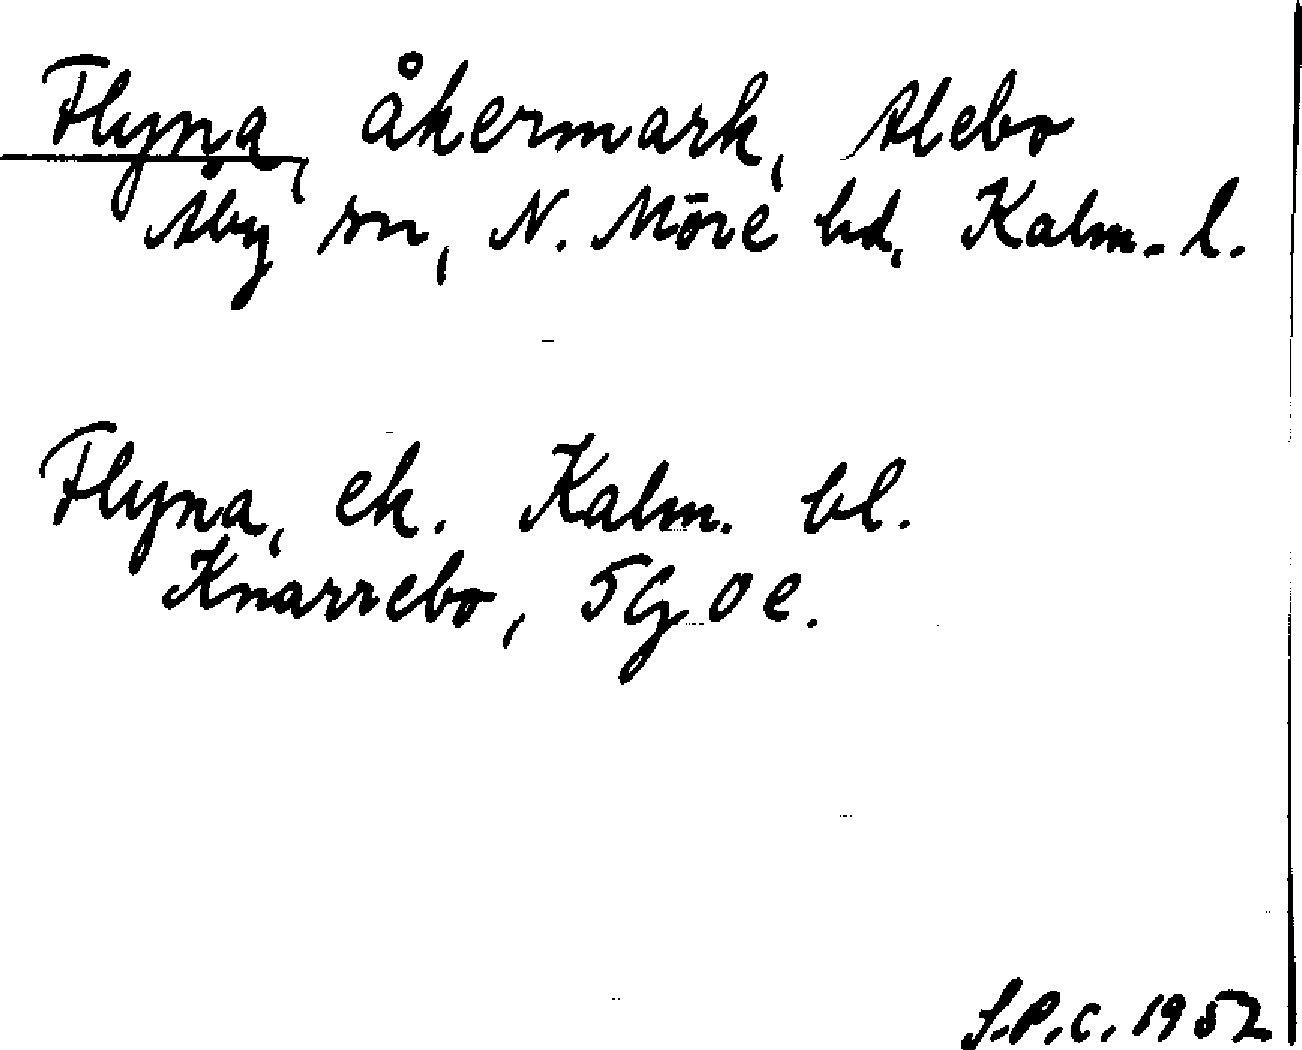 Flyna, åkermark, Alebo
Åby sn, N. Möre hd, Kalm. l.
Flyna, ek. Kalm. bl.
Knarrebo, 5G0e.
S.P.C. 1952